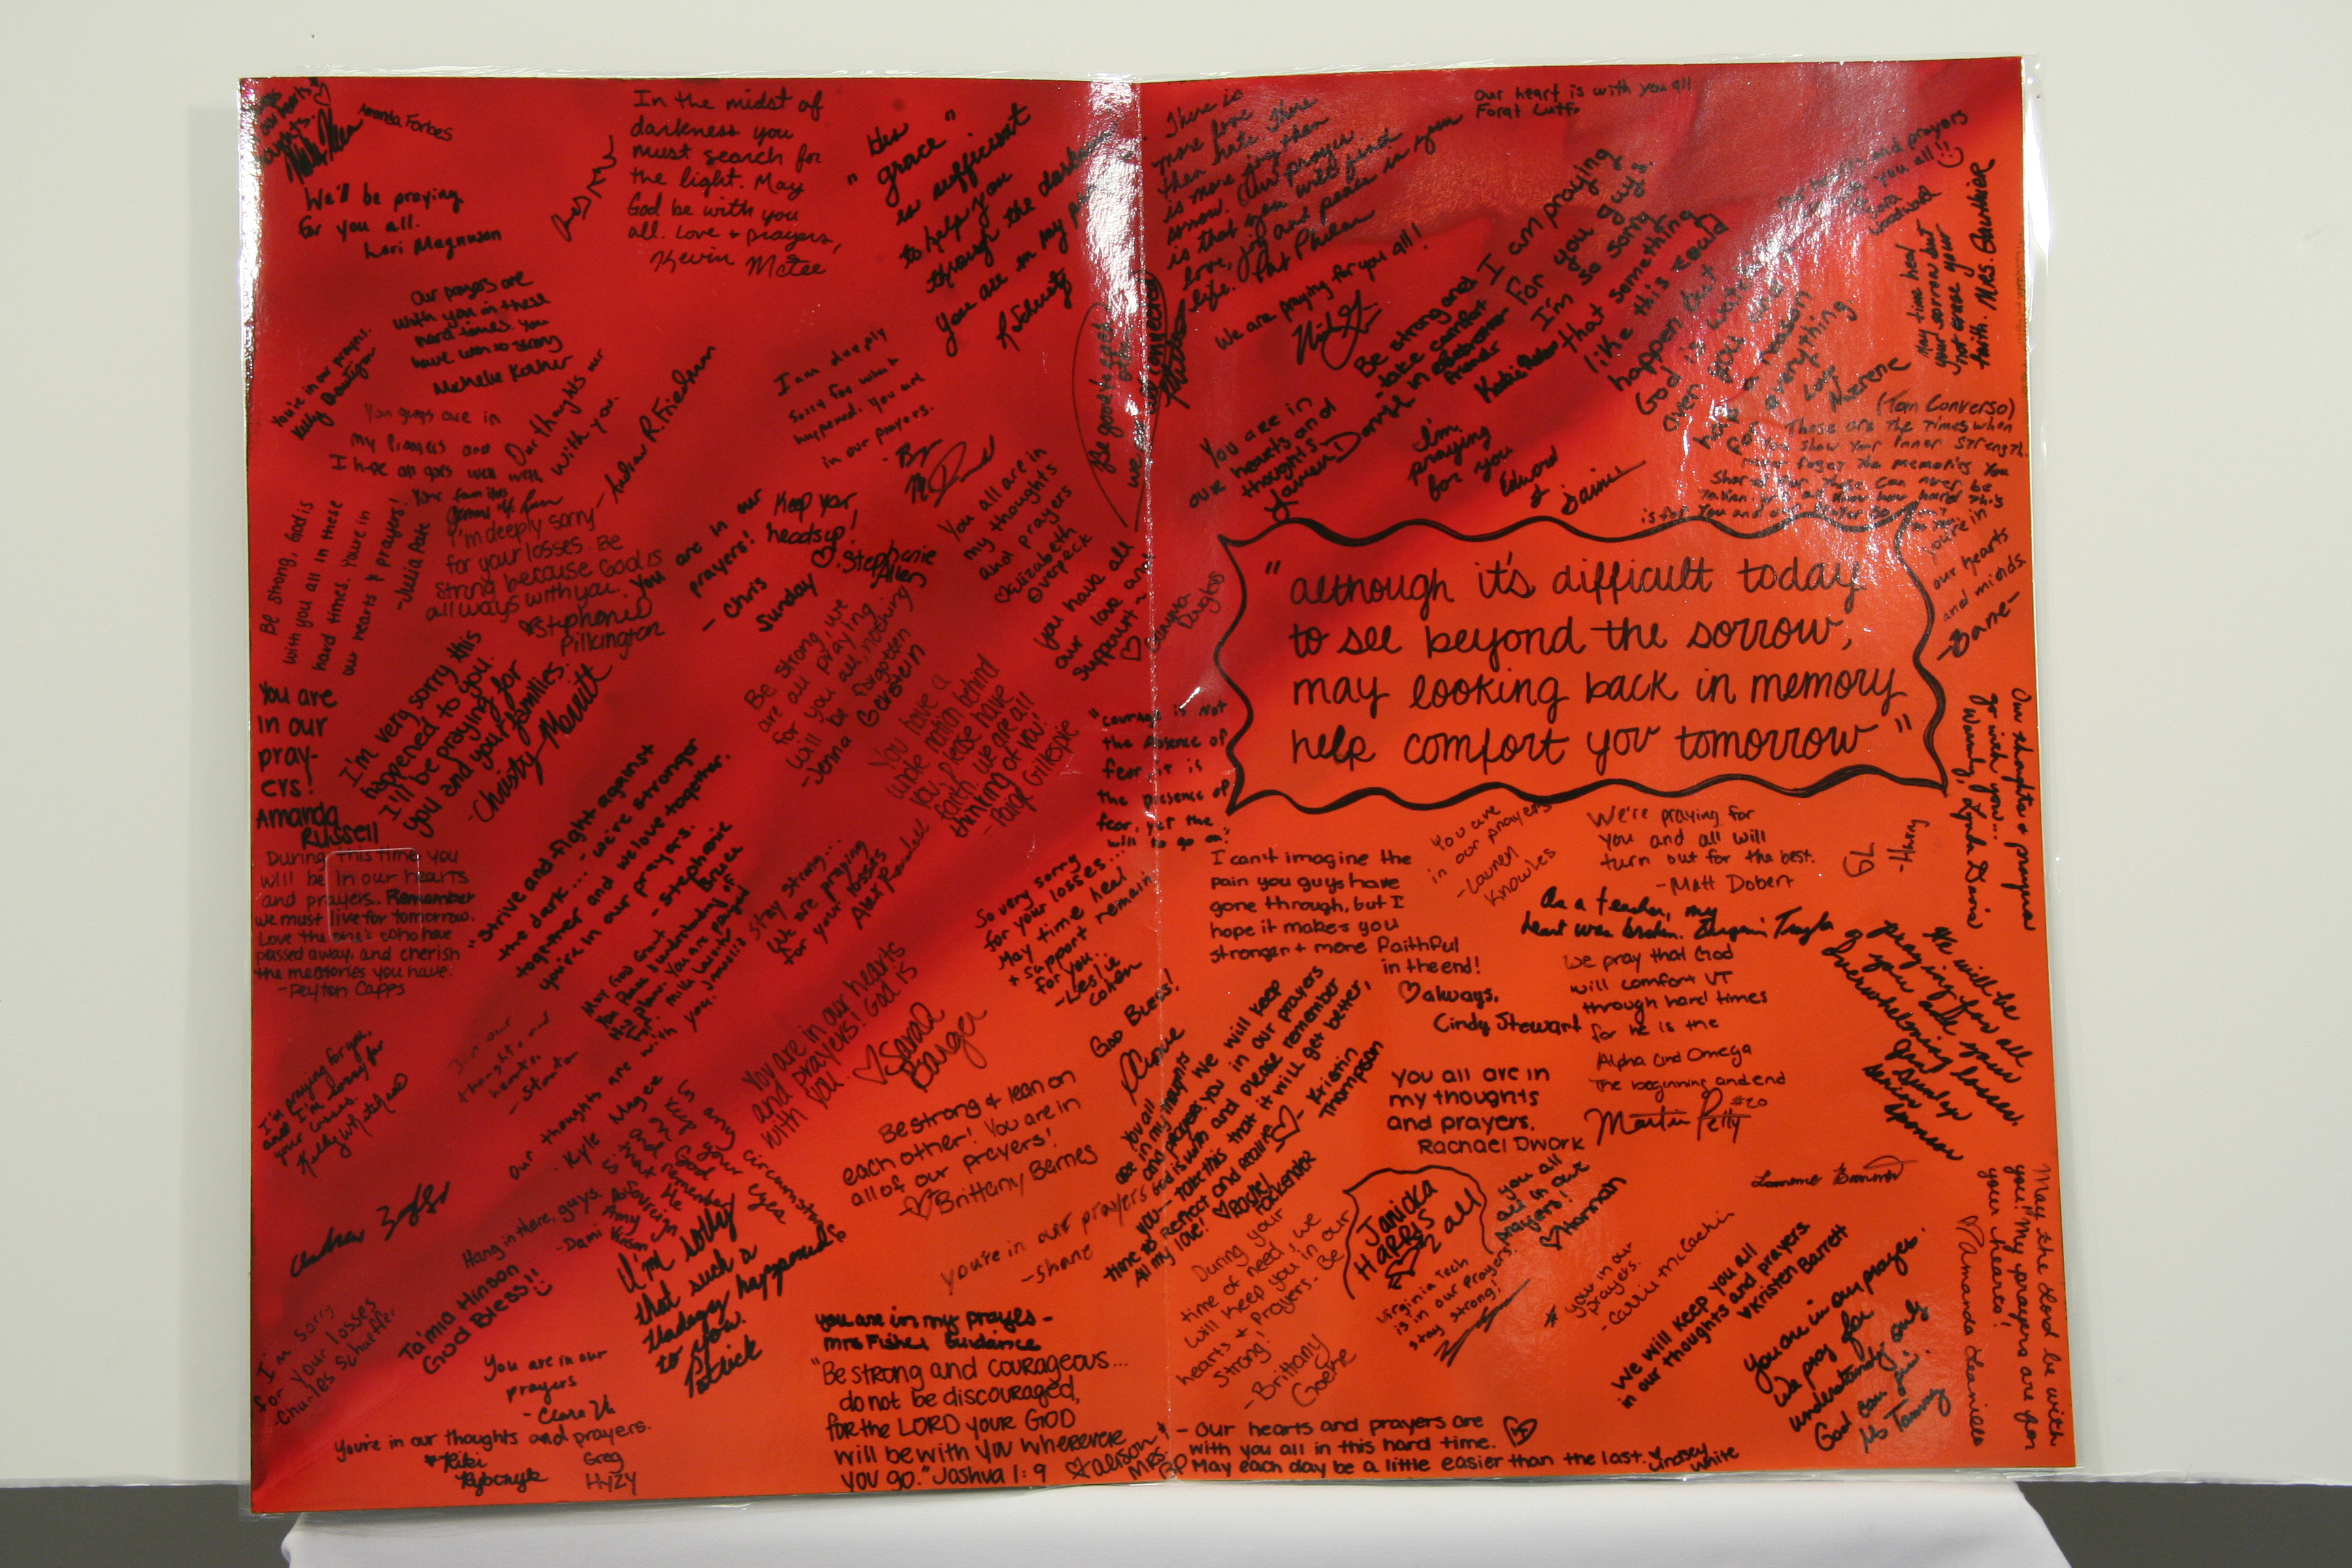 Amanda Forbes
We'll be praying
for you all.
Lori Magnuson
In the midst of
darkness you
must search for
the light. May
God be with you
all. Love + prayers,
Kevin McTee
"His
grace"
is sufficient
to help you
through the darkness
you are in my
Our prayers are
with you in these
hard times. You
have been so strong
You're in our prayers.
Kelly
You guys are in
my prayers and
I hope all goes well with
your families
Our thoughts are
with you.
- Andrew R. Friedman
I am deeply
sorry for what
happened. You are
in our prayers.
Be strong, God is
with you all in these
hard times. You're in
our hearts & prayers!
-Julia Pate
I'm deeply sorry
for your losses. Be
strong because God is
allways with you.
Stephanie
Pilkington
You are in our
prayers!
- Chris
Sunday
Keep your
heads up!
Stephanie
Allen
You all are in
my thoughts
and prayers
Elizabeth
Overpack
you have all
our love and
support~
You are
in our
pray-
ers!
Amanda
Russell
I'm very sorry this
happened to you.
I'll be praying for
you and your families.
-Christy Merritt
Be strong, we
are all praying
for you all, nothing
will be forgotten
-Jenna Gerstein
You have a
whole nation behind
you, please have
faith, we are all
thinking of you!
-Paige Gillespie
During this time you
will be in our hearts
and prayers. Remember
we must live for tomorrow.
Love the one's who have
passed away, and cherish
the memories you have.
-Peyton Capps
"Strive and fight against
the dark... - we're stronger
together and we love together.
you're in our prayers.
- Stephanie
Bruce
May God Grant
You Peace & understanding of
His plan. You are prayed
For.
Stay strong...
We are praying
for your losses
"courage is not
the absence of
fear it is
the presence of
fear, yet the
will to go on"
So very sorry
for your losses...
May time heal
+ support remain
for you.
-Leslie
Cohen
I'm praying for you,
and I'm sorry for
your losses.
in our
thoughts and
hearts.
- Stanton
our thoughts are with you.
- Kyle Magee
You are in our hearts
and prayers! God is
with you
Sarah
Barger
God Bless!
Be strong & lean on
each other! You are in
all of our prayers!
-Brittany Barnes
Hang in there, guys.
I'm sorry
that such a
tradegey happened
to you.
Patrick
you're in our prayers
-Shane
I'm sorry
for your losses
-Charles Schaeffer
Ta'mia Hinson
God Bless!!
You are in our
prayers
You're in our thoughts and prayers.
Kiki
Rybczyk
Greg
Hyzy
you are in my prayes-
Mrs Fisher Guidance
"Be strong and courageous...
do not be discouraged,
for the LORD your GOD
will be with you wherever
you go." Joshua 1:9
alison
There is
more love
than hate. There
is more joy than
sorrow. Our prayer
is that you will find
love, joy and peace in your
life.
Our heart is with you all
We are praying for you all!
Be strong and
take comfort
in eachother
friends
I am praying
for you guys.
I'm so sorry
that something
like this could
happen but
God is watching
over you and
has a reason
for everything
Love
Nazrene
Our hearts and prayers
with you all!!
May time heal
your sorrow but
not erase your
faith. Mrs. Gauthier
You are in
our hearts and
thoughts
I'm
praying
for you
Edward
(Tom Converso)
These are the times when
You show your inner strength.
never forget the memories you
shared
you're in
our hearts
and minds.
"although it's difficult today
to see beyond the sorrow,
may looking back in memory
help comfort you tomorrow"
Our thoughts + prayers
go with you...
Warmly, Lynda Davis
You are
in our prayers
-Lauren
Knowles
We're praying for
you and all will
turn out for the best.
-Matt Dobert
I can't imagine the
pain you guys have
gone through, but I
hope it makes you
stronger + more faithful
in the end!
always,
Cindy Stewart
As a teacher, my
heart was broken.
we pray that God
will comfort VT
through hard times
for he is the
Alpha and Omega
The beginning and end
Martin Petty #20
We will be
praying for all
of you and your
overwhelming losses.
Senior
Sponsor
You all are
in my thoughts
and prayers
We will keep
you in our prayers
God is with and please remember
that it will get better,
- Kristin
Thompson
take this
time to reflect and realize
All my love!
You all are in
my thoughts
and prayers.
Rachael Dwork
Janicka
Harris
2 all
you all
are in our
prayers!
Hannah
During your
time of need, we
will keep you in our
hearts + prayers. Be
strong!
-Brittany
Goethe
Virginia Tech
is in our prayers!
stay strong!
your in our
prayers.
we will keep you all
in our thoughts and prayers
Kristen Barrett
You are in our prayers.
We pray for
understanding only
God can give.
Ms Tammy
May the Lord be with
you! My prayers are for
your hearts!
- Our hearts and prayers are
with you all in this hard time.
May each day be a little easier than the last.
Lindsey
White